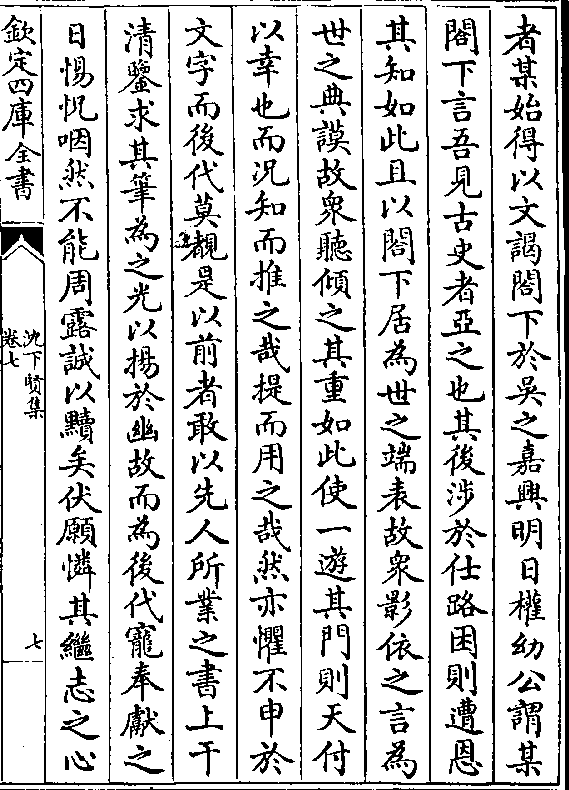 者某始得以文謁閤下於吳之嘉興明日權幼公謂某
閤下言吾見古史者亞之也其後涉於仕路困則遭恩
其知如此且以閤下居為世之端表故衆影依之言為
世之典謨故衆聽傾之其重如此使一遊其門則天付
以幸也而況知而推之哉提而用之哉然亦懼不申於
文字而後代莫覩是以前者敢以先人所業之書上干
清鑒求其筆為之光以揚於幽故而為後代寵奉獻之
日惕怳咽然不能周露誠以黷矣伏願憐其繼志之心
欽定四庫全書
沈下賢集
卷七
七